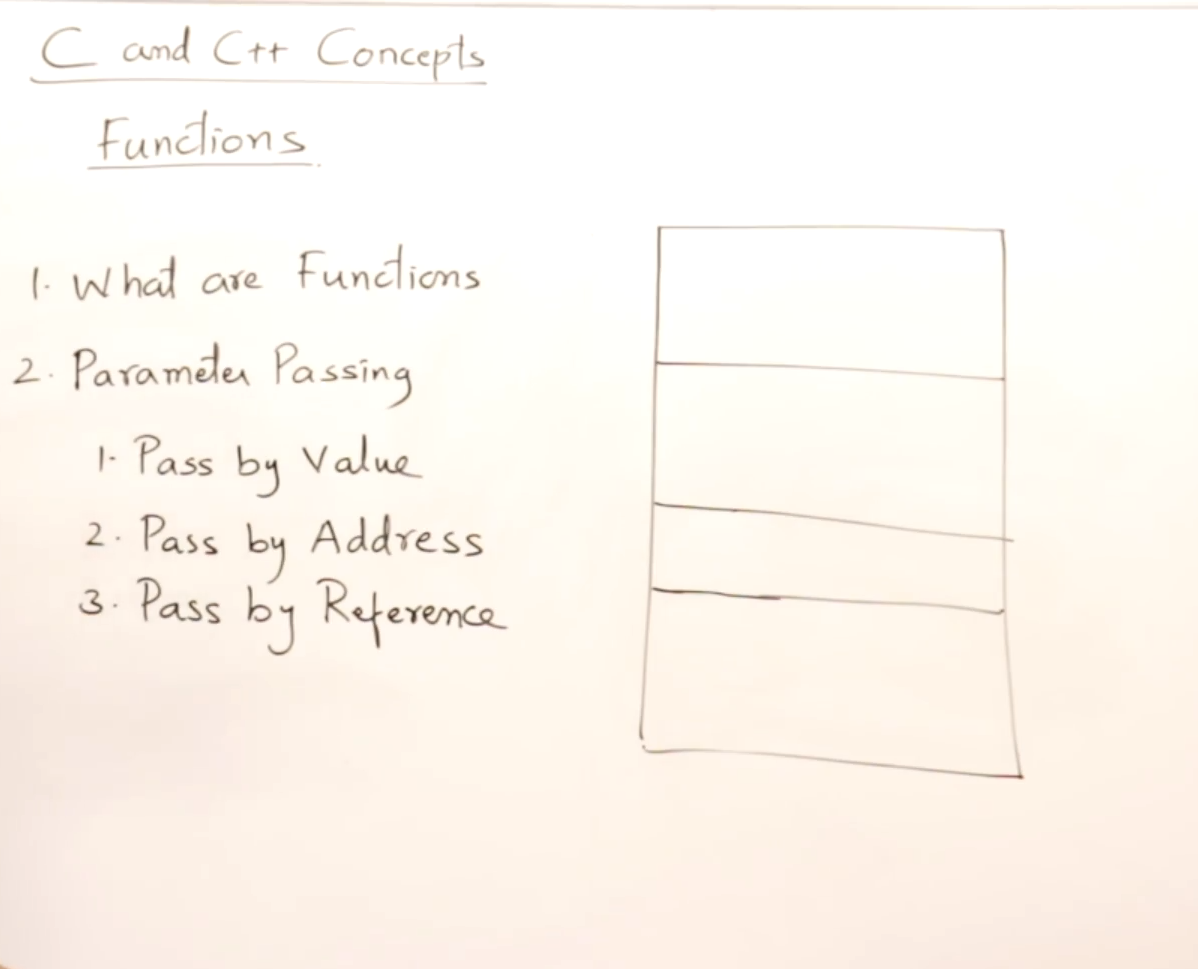 C and C++ Concepts
Functions
1. What are Functions
2. Parameter Passing
1. Pass by Value
2. Pass by Address
3. Pass by Reference